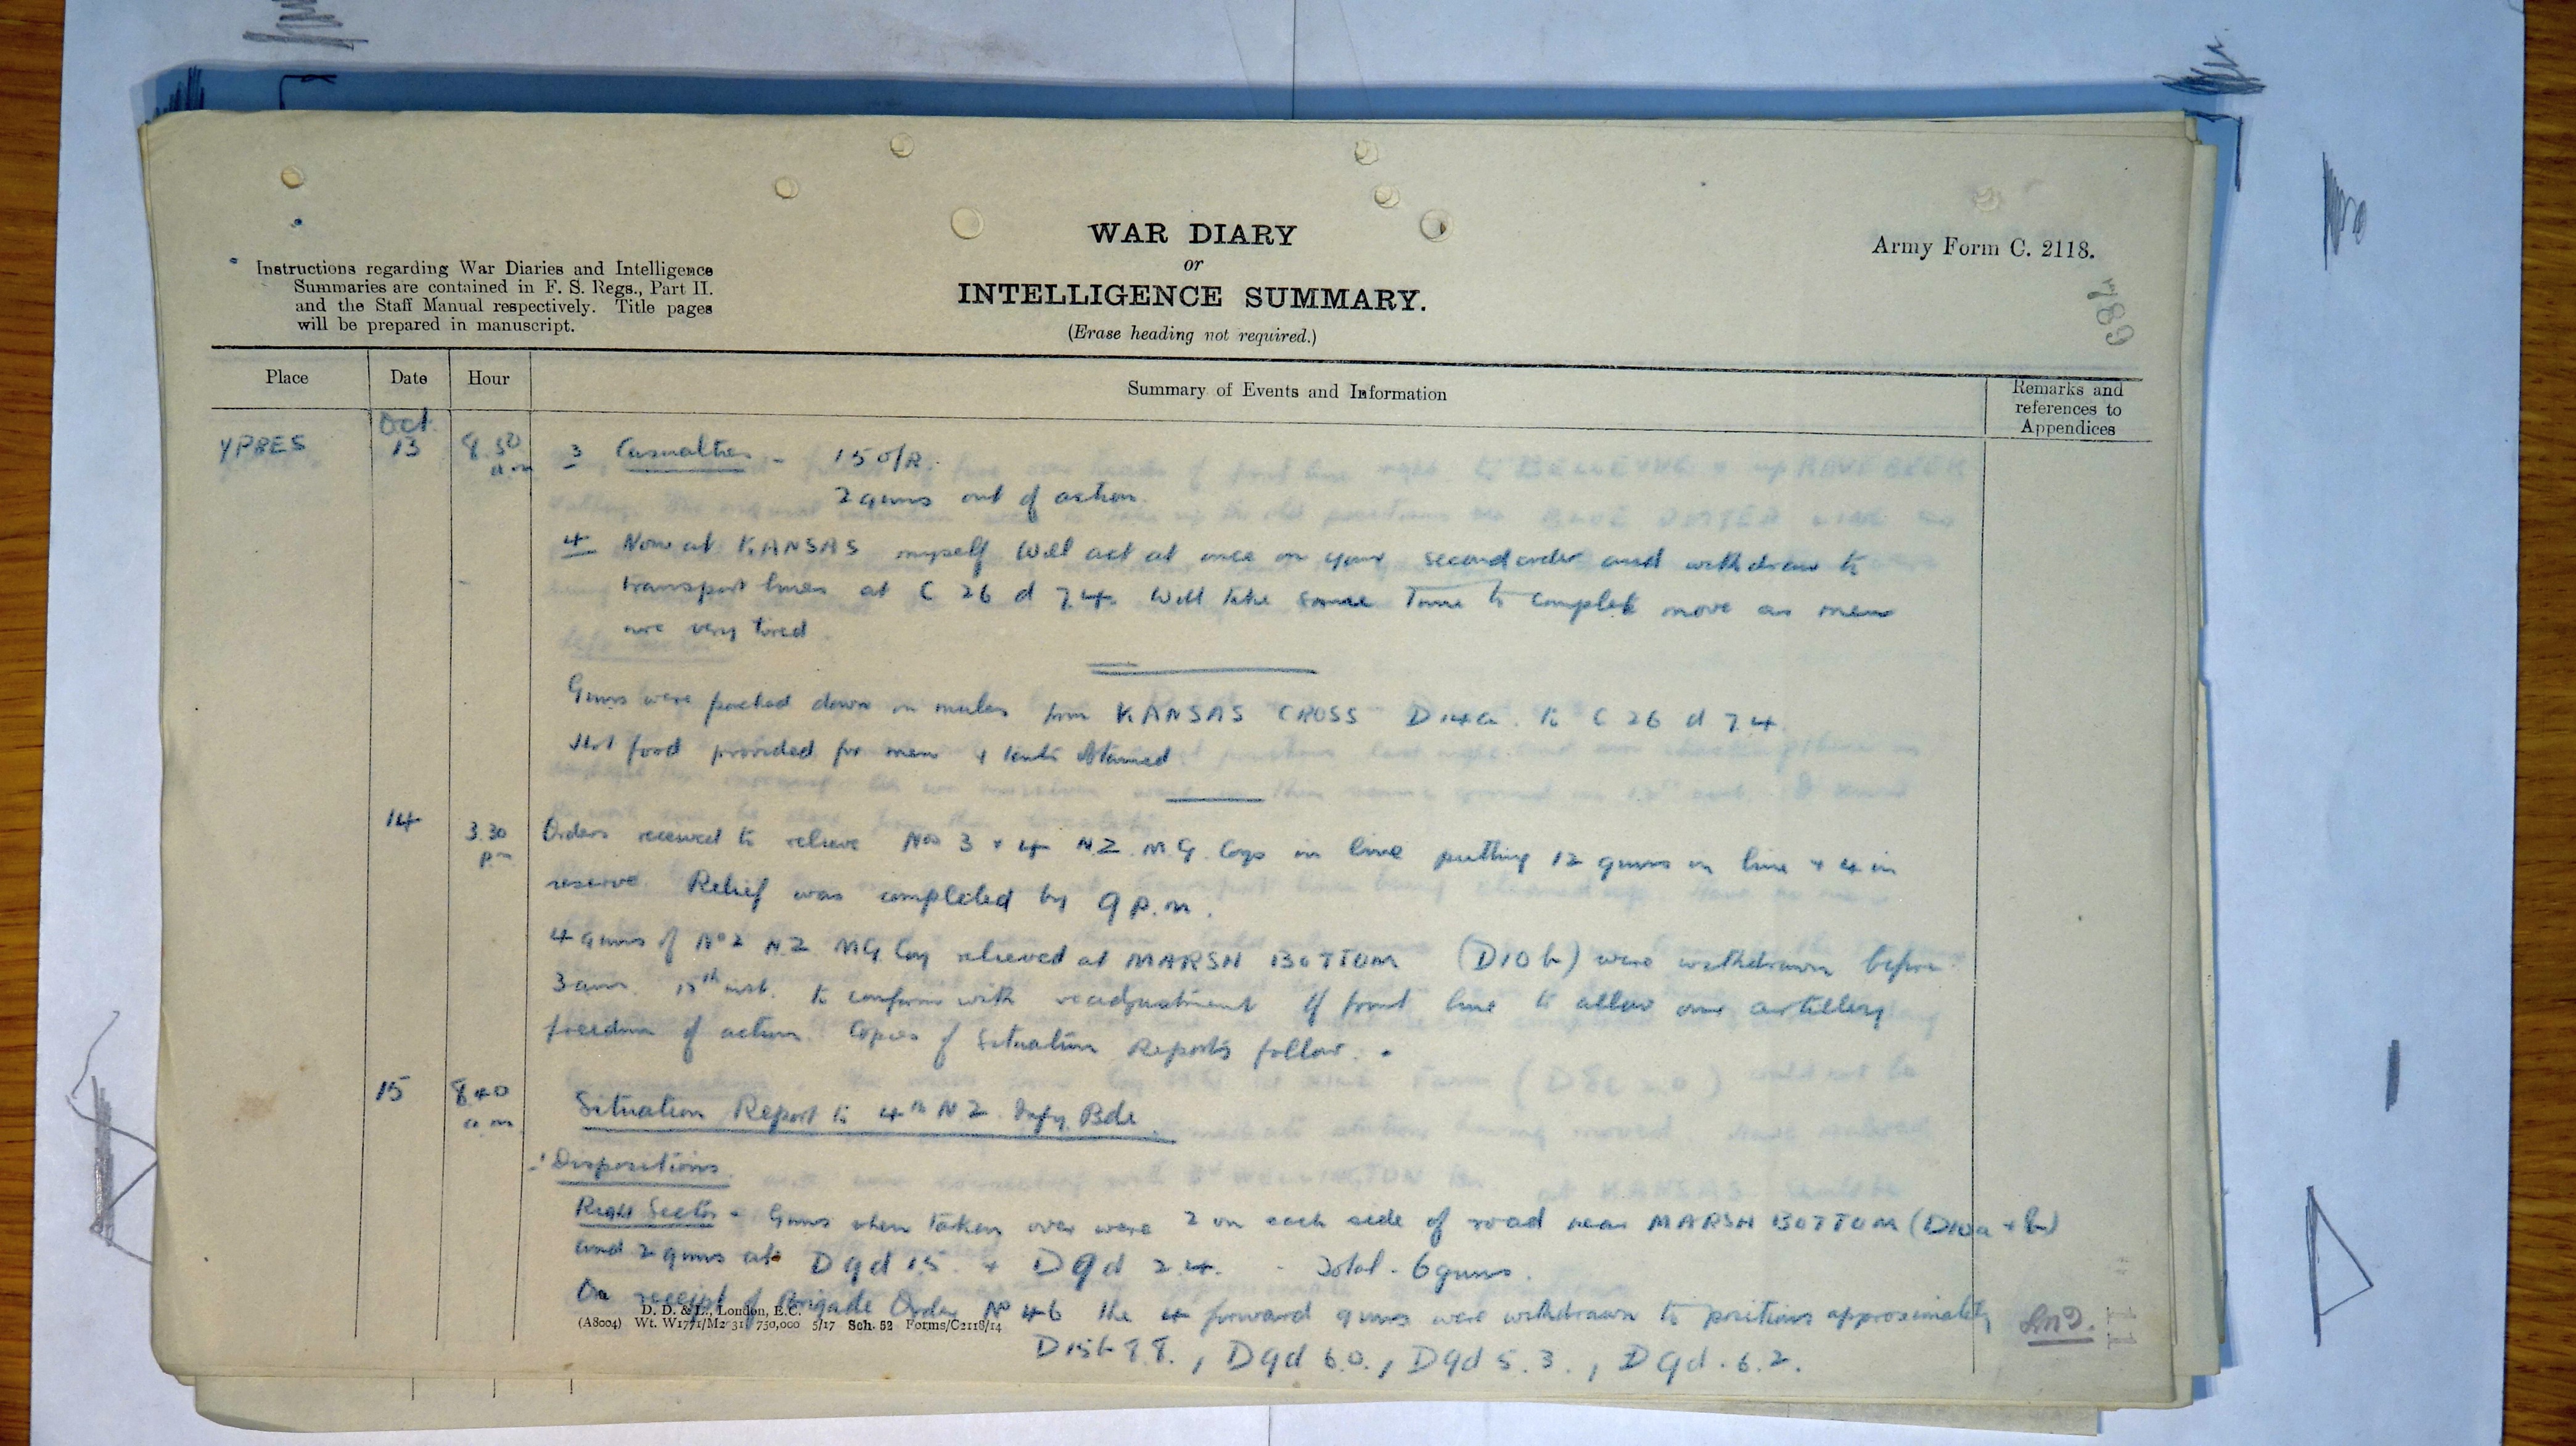 WAR DIARY
or
INTELLIGENCE SUMMARY.
(Erase heading not required.)
Army Form C. 2118.
Instructions regarding War Diaries and Intelligence
Summaries are contained in F. S. Regs., Part II.
and the Staff Manual respectively. Title pages
will be prepared in manuscript.
Place Date Hour Summary of Events and Information Remarks and references to Appendices
YPRES Oct. 13 8.50 a.m 3 Casualties - 15 O/R.
2 guns out of action.
4 Now at KANSAS myself Will act at once on your second order and withdraw to
transport lines at C 26 d 7.4. Will take some time to complete move as men
are very tired.
Guns were packed down on mules from KANSAS CROSS D14a. to C 26 d 7.4.
Hot food provided for men & tents obtained
14 3.30 pm Orders received to relieve Nos 3 & 4 N.Z. M.G. Coys in line putting 12 guns in line & 4 in
reserve. Relief was completed by 9 p.m.
4 guns of No 2 N.Z. MG Coy relieved at MARSH BOTTOM (D10b) were withdrawn before
3 am. 15th inst. to conform with readjustment of front line to allow our artillery
freedom of action. Copies of Situation Reports follow.
15 8.40 a.m Situation Report to 4th N.Z. Infy. Bde
Dispositions.
Right Sector - Guns when taken over were 2 on each side of road near MARSH BOTTOM (D10a & b)
and 2 guns at D9d 1.5. & D9d 2.4. - Total - 6 guns.
On receipt of Brigade Order No 46 the 4 forward guns were withdrawn to positions approximately
D15b 8.8., D9d 6.0., D9d 5.3., D9d.6.2.
D. D. & L., London, E.C.
(A8004) Wt. W1771/M2 31 750,000 5/17 Sch. 52 Forms/C2118/14